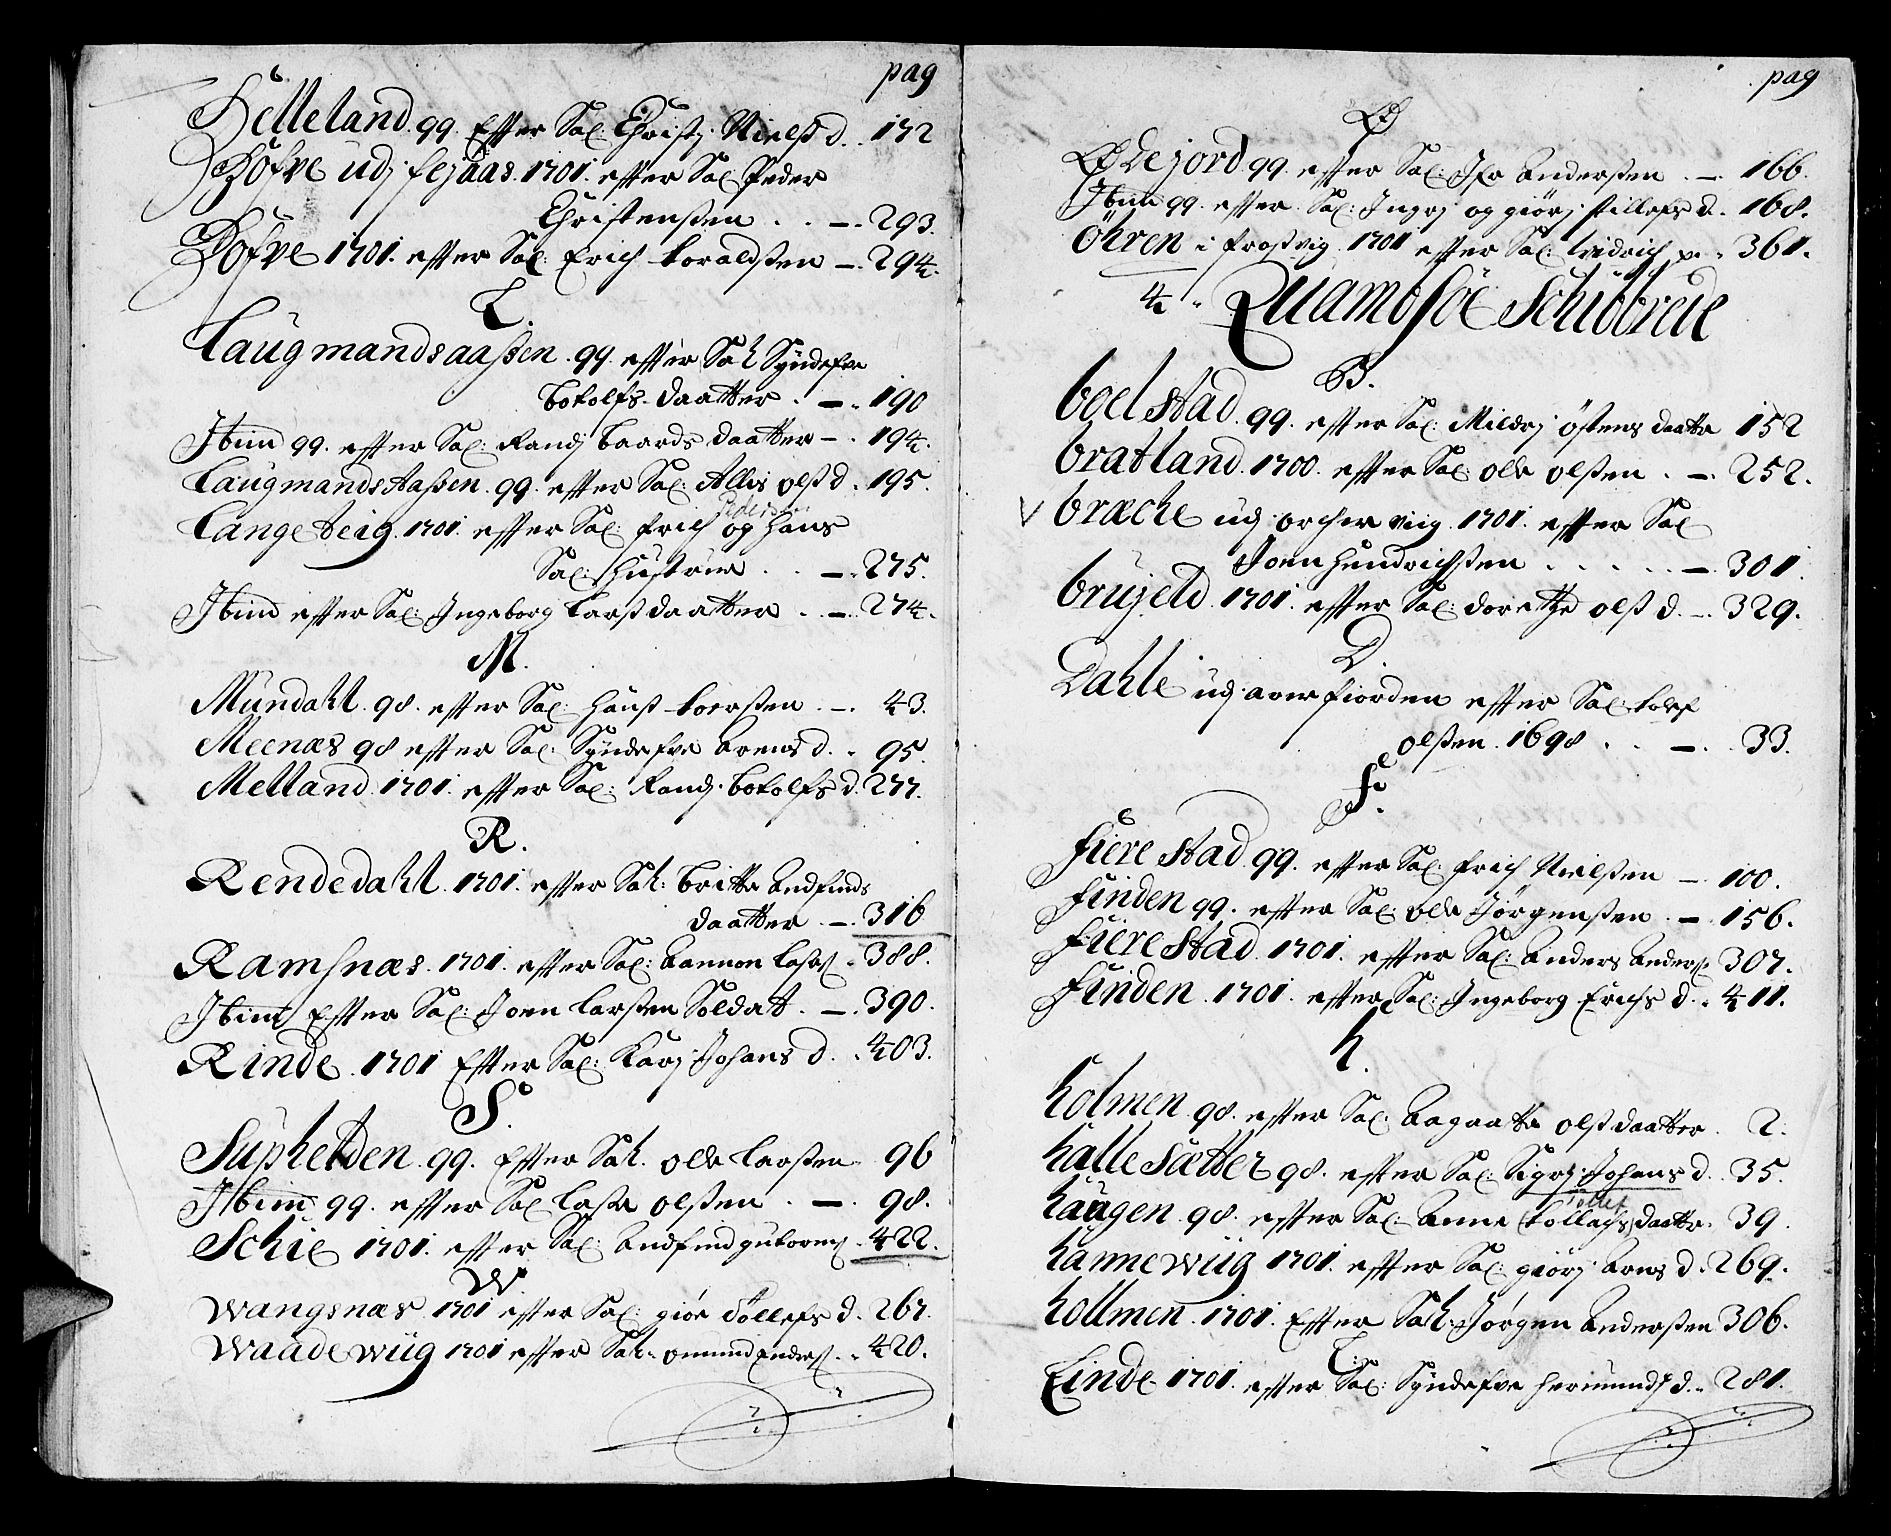 pag
Helleland. 99. Efter Sal: Christj Nielsd. 172
Hofve udj fejaas. 1701. efter Sal Peder
Christensen . . – 293.
Hofve 1701. efter Sal: Erich toraldsen – 294.
L.
Laugmandsaassen. 99. efter Sal Syndefve
botolfs daatter . – 190
Ibim 99. efter Sal: Randj baards daatter – 194.
LaugmandsAassen. 99. efter Sal: Allis ols d. 195.
Pedersen
Langeteig. 1701. efter Sal: Erich og Hans
Sal: Hustrue . . – 275.
Ibim efter Sal: Ingeborg Lars daatter . – 274.
M.
Mundahl. 98. efter Sal: Hans toersen . – . 43.
Meenæs 98 efter Sal: Syndefve Arens d. 95.
Melland. 1701. efter Sal: Randj botolfs d. 277.
R.
Rendedahl. 1701. efter Sal: britte Andfinds
daatter . – . 316
Ramsnæs. 1701. efter Sal: Aamon Lases . 388.
Ibim Efter Sal: Joen Larsen Soldat . – . 390.
Rinde. 1701 Efter Sal: Karj Johans d. . 403.
S.
Suphelden. 99. Efter Sal. ole Larsen 96
Ibim 99. efter Sal Lasse olsen . – . 98.
Schie 1701. efter Sal: Andfind guttorms . 422.
W.
Wangsnæs. 1701 efter Sal: giøe tollefs d. 267.
Waadewiig 1701 efter Sal: omund Enders . . 420.
pag
Ø
Ødejord 99. efter Sal: Ifr Andersen . – 166.
Ibim 99. efter Sal: Ingrj og giørj tillefs d. 168.
öhren i frostvig. 1701 efter Sal: 361.
4. Quamsøe Schibrede
B.
boelstad. 99. efter Sal: Mildrj östens daatte 152
bratland. 1700. efter Sal: ole olsen . – . 252.
V bræche udj orcher viig. 1701. efter Sal
Joen Hendrichsen . . . . . – . 301.
brujeld. 1701. efter Sal: dorethe ols d. – . 329.
D.
Dahle udj arnefiorden efter Sal tolef
olsen. 1698 . . – . . 33.
F.
Fierestad 99. efter Sal: Erich Nielsen – 100.
Finden 99. efter Sal: ole Jørgensen . – 156.
Fierestad. 1701. efter Sal: Anders Anders. 307.
Finden. 1701. efter Sal: Ingeborg Erichs d. . 411.
h.
holmen. 98. efter Sal: Aagaatte ols daatter . 2.
hallesætter 98. efter Sal: Sigrj Johans d. 35.
haugen. 98. efter Sal: Anne tollachs daatte. 39.
hannewiig 1701. efter Sal: giørj Arns d. 269.
hollmen. 1701. Efter Sal: Jørgen Andersen 306.
L:
Linde. 1701. efter Sal: Syndefve Hermunds d. . 281.